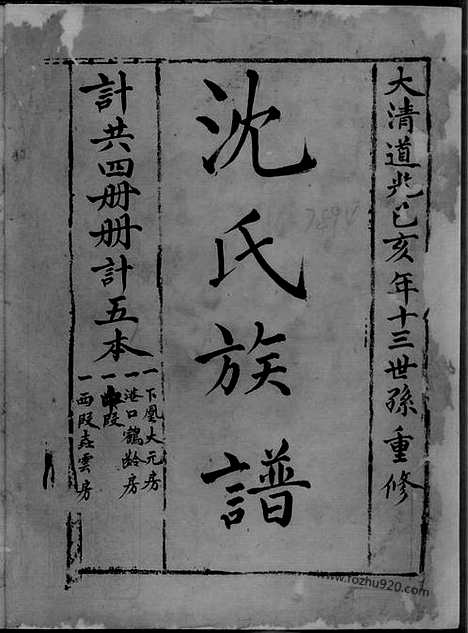 大清道光己亥年十三世孫重修
沈氏族譜
計共四册册計五本
一下凰大元房
一港口鶴齡房
一中段
一西段垚雲房
www.fozhu920.com